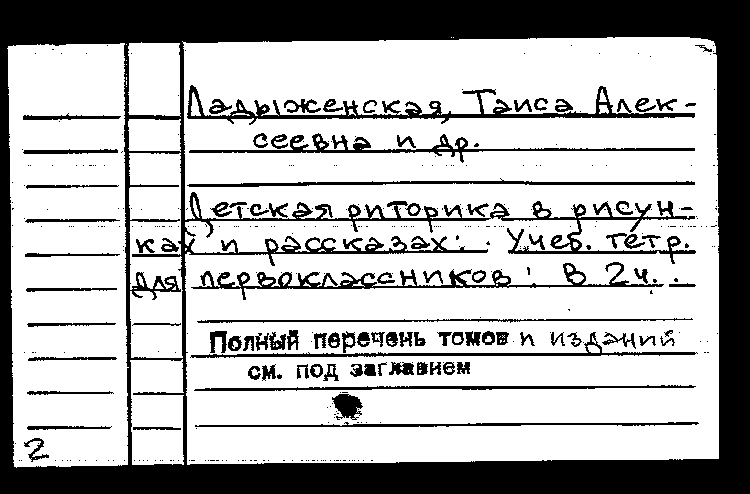 Ладыженская, Таиса Алек-
сеевна и др.
Детская риторика в рисун-
ках и рассказах: Учеб. тетр.
для первоклассников: В 2 ч. .
Полный перечень томов и изданий
см. под заглавием
2